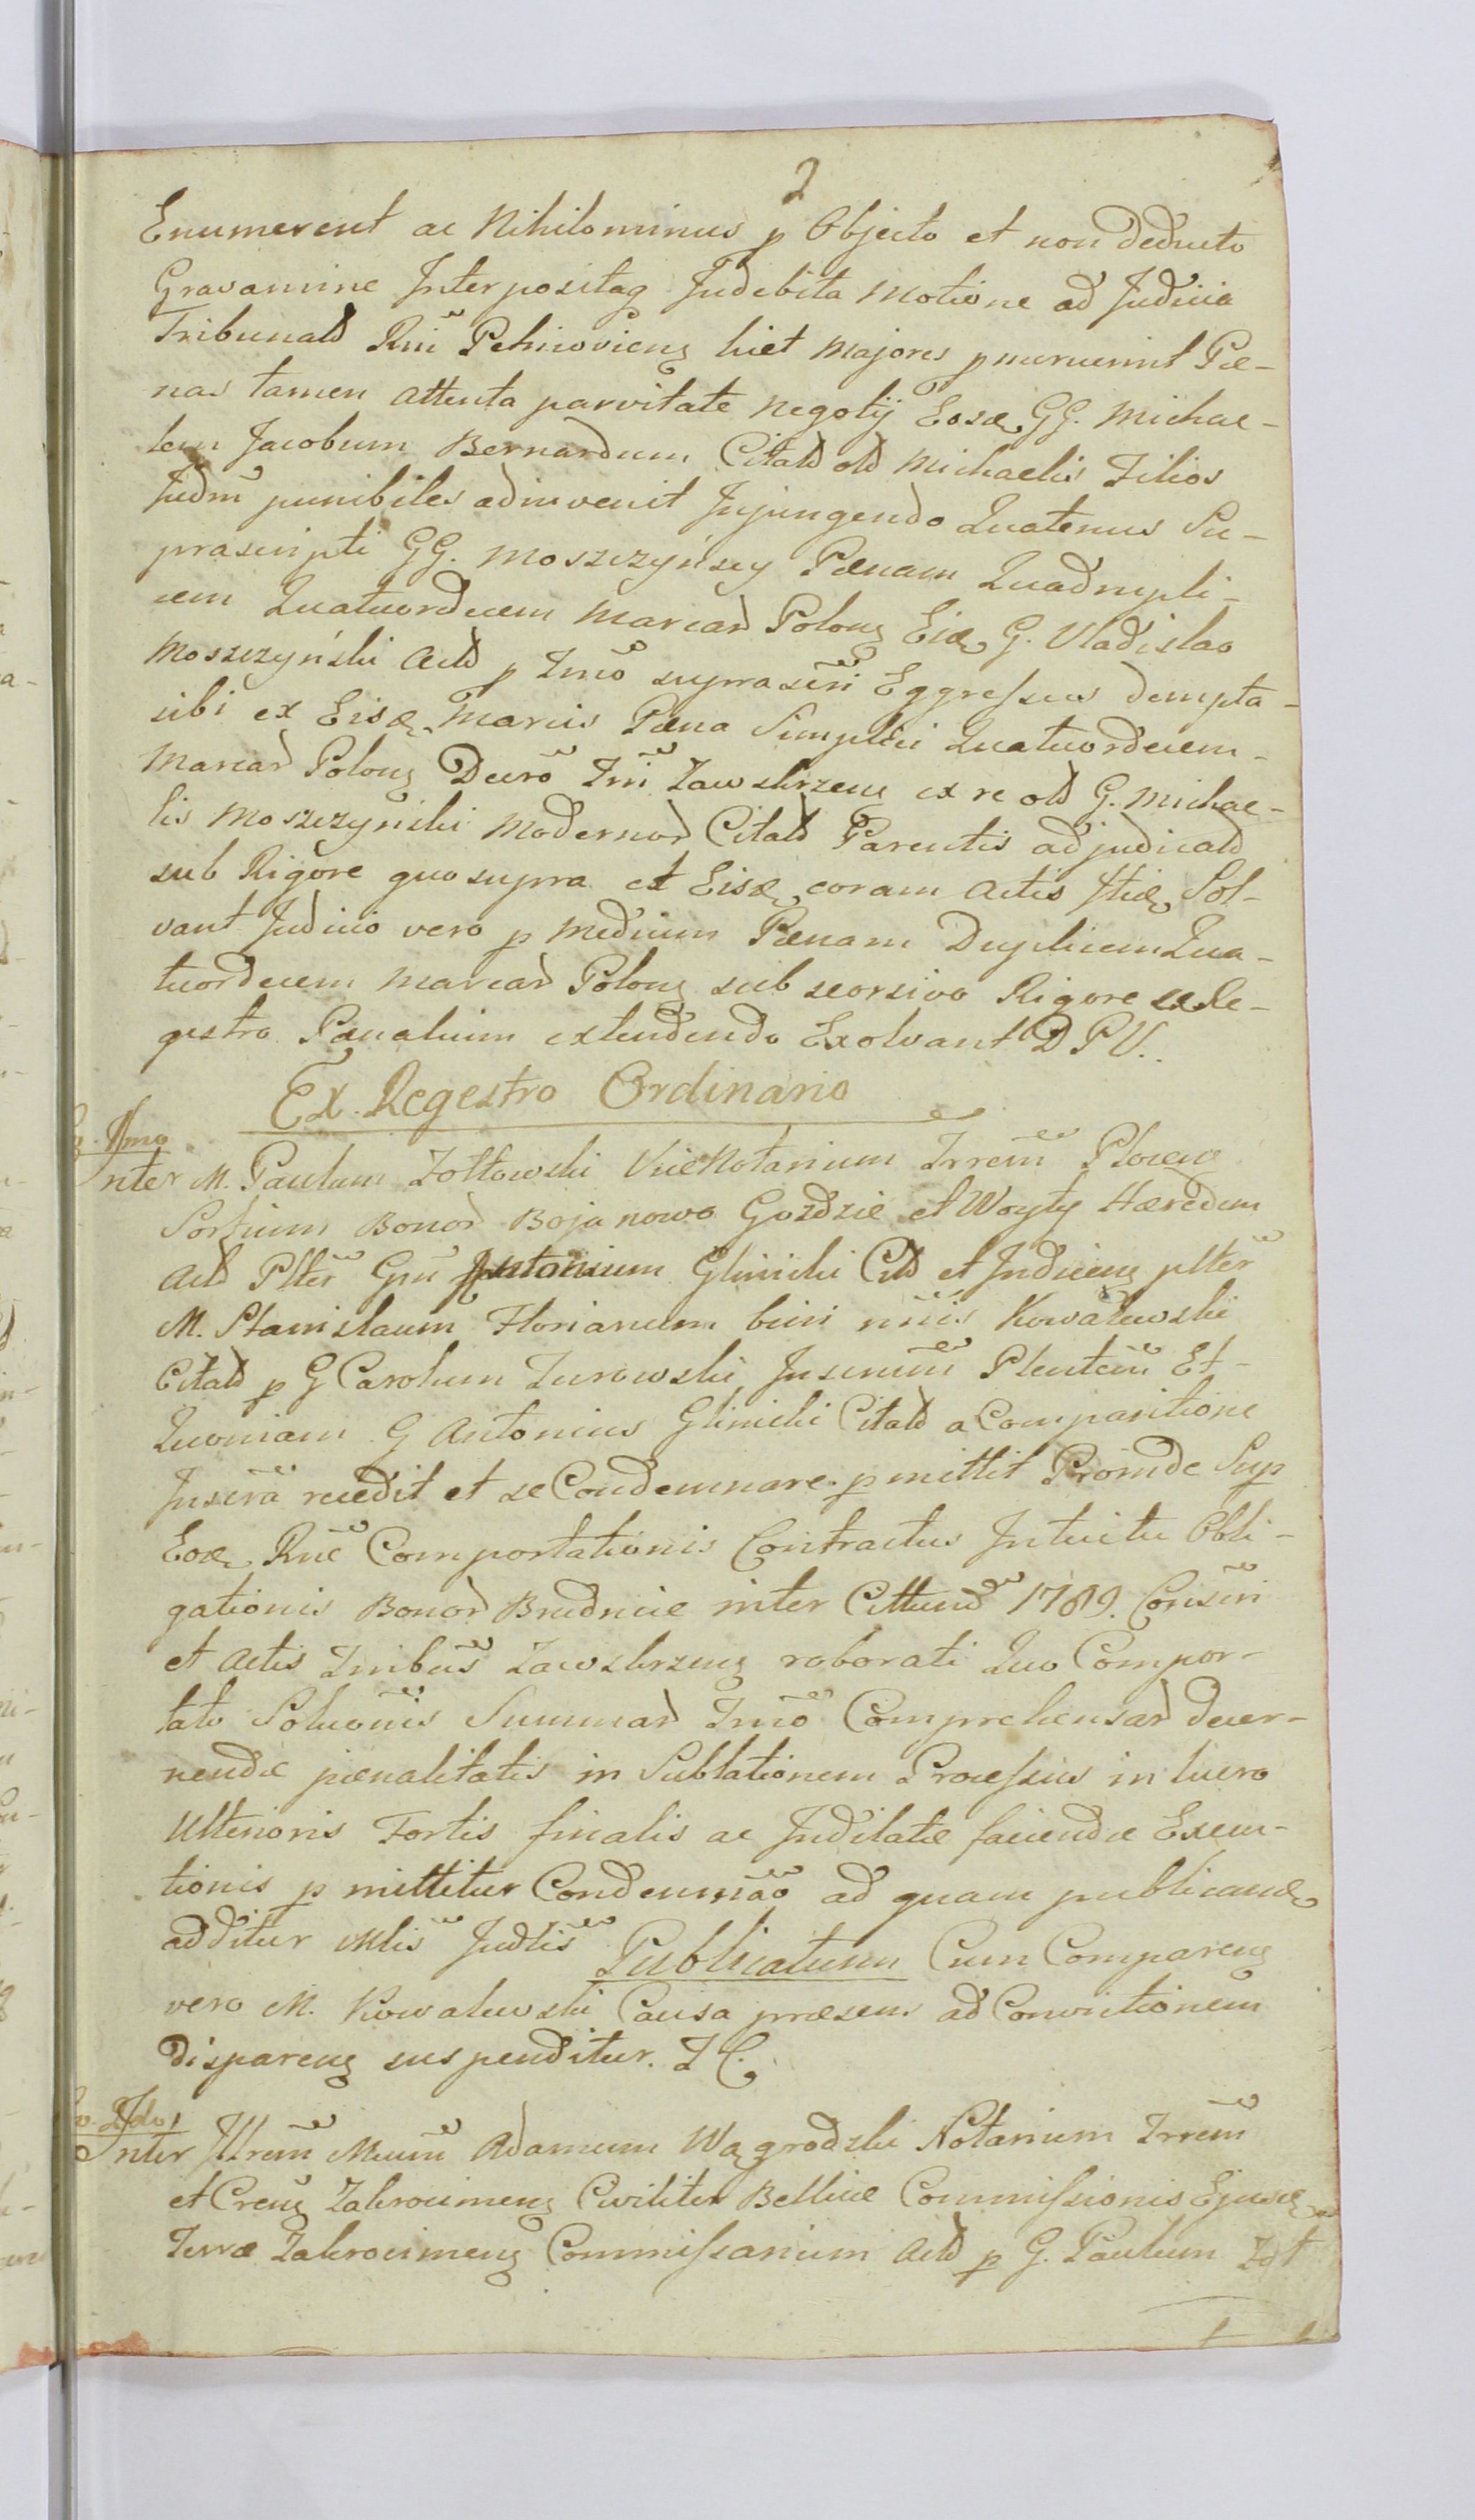 2
Enumerent ac Nihilominus p Objecto et non deducto
Gravamine Interpositaq Indebita Motione ad Judicia
Tribunald Rni Petricoviens licet Majores p meruerint Pæ-
nas tamen attenta parvitate Negotij Eosd GG. Michae-
lem Jacobum Bernardum Citatd old Michaelis Filios
Judm punibiles adinvenit Injungendo Quatenus Su-
prascripti GG. Moszczyńscy Pænam Quadrupli-
cem Quatuordecem Marcard Polons Eid G. Vladislao
Moszczyński Actd p Tmo suprascri Eggressus dempta-
sibi ex Eisd Marcis Pæna Simplici Quatuordecem-
Marcard Polons Decro Tni Zawskrzens ex re old G. Michae-
lis Moszczyński Modernord Citatd Parentis adjudicatd
sub Rigore quo supra et Eisd coram Actis Hic Sol-
vant Judicio vero p Medium Pænam Duplicem Qua-
tuordecem Marcard Polons sub seorsivo Rigore ex Re-
gestro Pænalium extendendo Exolvant DPV..
Ex Regestro Ordinario
Imo
Inter M. Paulum Zołtowski ViceNotarium Trrem Plocens
Sortium Bonord Bojanowo Gozdzie et Woyty Hæredem
Actd Plter Gm Antonium Glinicki Citd et Judicens plter
M. Stanislaum Florianum bini nnis Kowalewski
Citatd p G Carolum Zurowski Juscrium Plentem Et-
Quoniam G Antonius Glinicki Citatd a Comparitione
Juscra recedit et se Condemnare p mittit Proinde Sup
Eod Rne Comportationis Contractus Intuitu Obli-
gationis Bonord Brudnice inter Cittund 1789. Conscri
et Actis Tribus Zawskrzens roborati Quo Compor-
tato Soluonis Summard Tmo Comprehensard decer-
nendæ pænalitatis in Sublationem Processus in lucro
Ulterioris Fortis finalis ac Indilatæ faciendæ Exem-
tionis p mittitur Condemnao ad quam publicand
additur Mlis Judlis Publicatum Cum Compareng
vero M. Kowalewski Causa præsens ad Convictionem
Dispareng suspenditur. I C.
Ido
Inter Illrem Mcum Adamum Wągrodzki Notarium Trrem
et Crens Zakrocimens Civiliter Bellicæ Commissionis Ejusd
Terræ Zakrocimens Commissarium Actd p G. Paulum Zoł